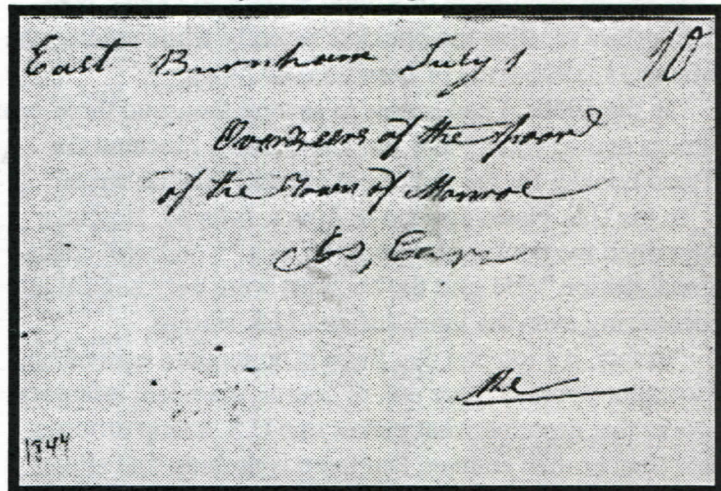 East Burnham July 1 10
Overseers of the Poor
of the Town of Monroe
Me
1844